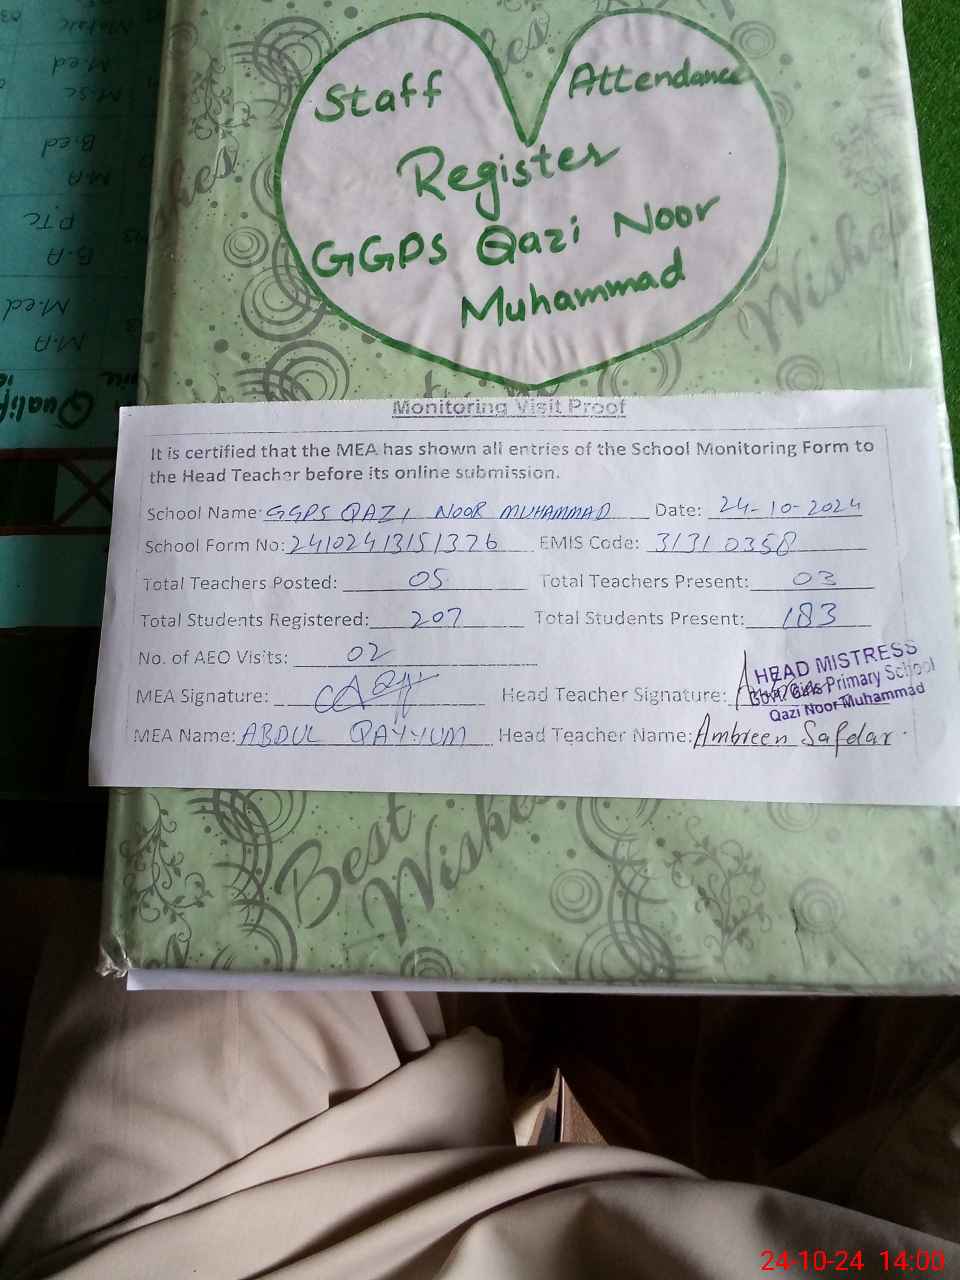 Staff Attendance
Register
GGPS Qazi Noor
Muhammad
Monitoring Visit Proof
It is certified that the MEA has shown all entries of the School Monitoring Form to
the Head Teacher before its online submission.
School Name: GGPS QAZI NOOR MUHAMMAD Date: 24-10-2024
School Form No: 24102413151376 EMIS Code: 31310358
Total Teachers Posted: 05 Total Teachers Present: 03
Total Students Registered: 207 Total Students Present: 183
No. of AEO Visits: 02
MEA Signature: Head Teacher Signature:
HEAD MISTRESS
Girls Primary School
Qazi Noor Muhammad
MEA Name: ABDUL QAYYUM Head Teacher Name: Ambreen Safdar.
Best
Wishes
Wishes
M.ed
M.Sc
B.ed
M.A
PTC
B.A
M.ed
M.A
24-10-24 14:00